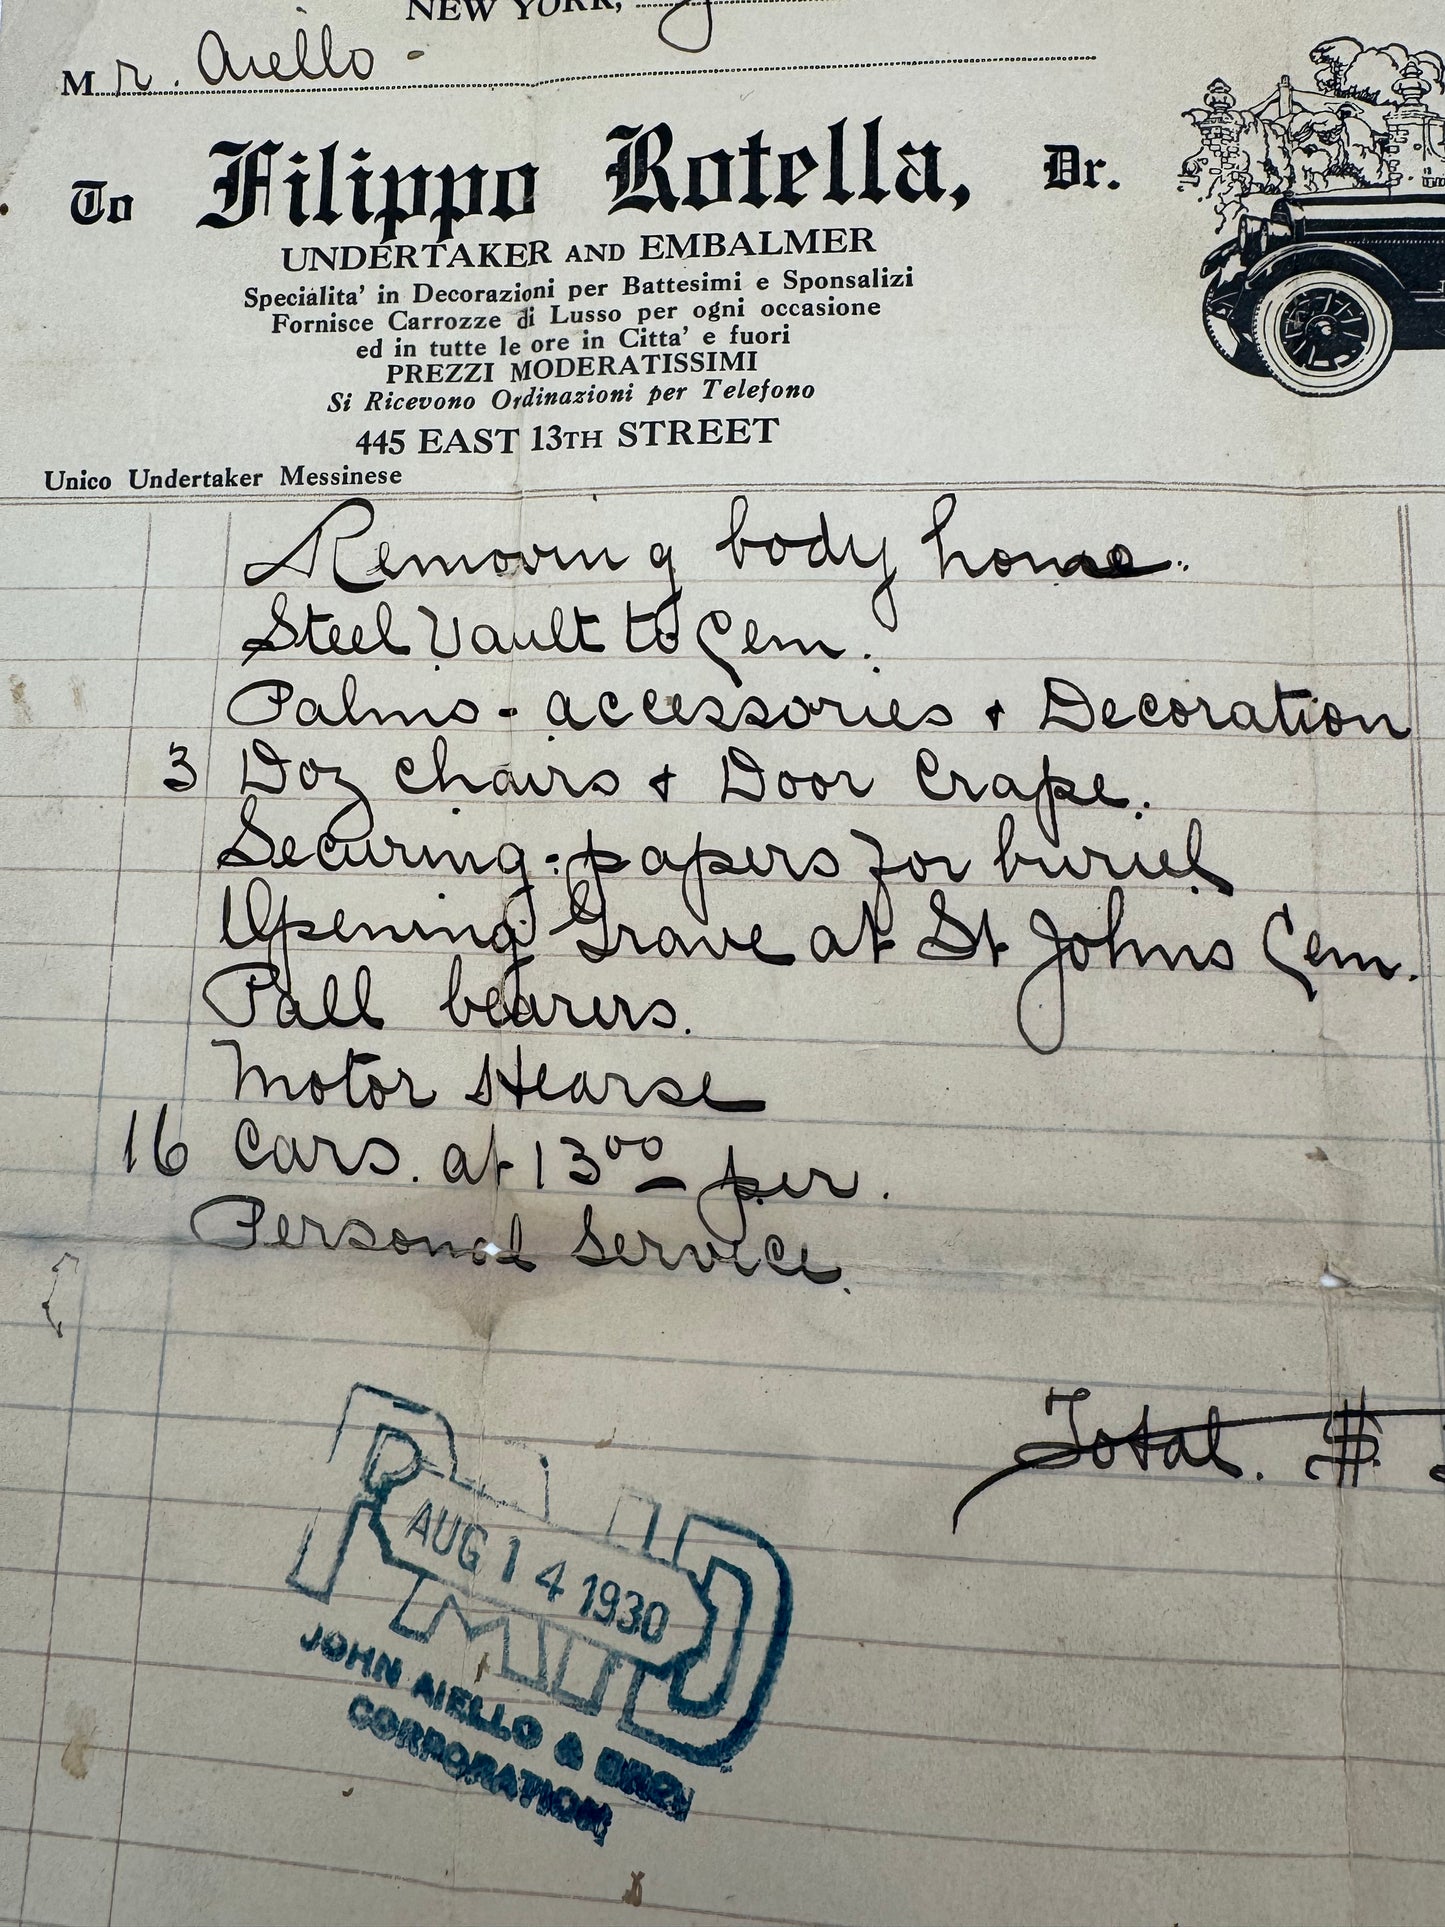 NEW YORK,
Mr. Aiello -
To Filippo Rotella, Dr.
UNDERTAKER AND EMBALMER
Specialita' in Decorazioni per Battesimi e Sponsalizi
Fornisce Carrozze di Lusso per ogni occasione
ed in tutte le ore in Citta' e fuori
PREZZI MODERATISSIMI
Si Ricevono Ordinazioni per Telefono
445 EAST 13TH STREET
Unico Undertaker Messinese
Removing body home.
Steel Vault to Cem.
Palms - accessories & Decoration
3 Doz chairs & Door Crape.
Securing - papers for buriel
Opening Grave at St Johns Cem.
Pall bearers.
Motor Hearse
16 Cars. at 13 00 per.
Personal Service.
Total. $
PAID
AUG 14 1930
JOHN AIELLO &
CORPORATION